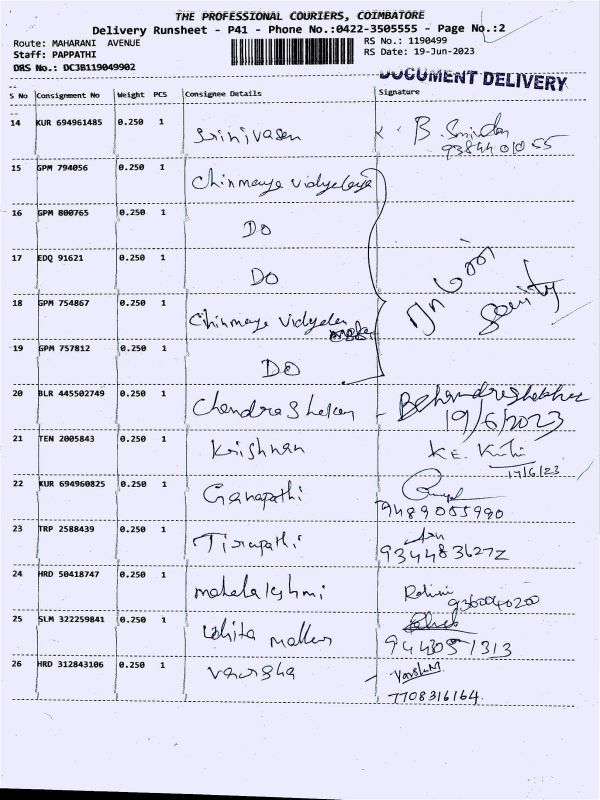 THE PROFESSIONAL COURIERS, COIMBATORE
Delivery Runsheet - P41 - Phone No.:0422-3505555 - Page No.:2
Route: MAHARANI AVENUE
RS No.: 1190499
Staff: PAPPATHI
RS Date: 19-Jun-2023
DRS No.: DCJB119049902
DOCUMENT DELIVERY
S No Consignment No Weight PCS Consignee Details Signature
14 KUR 694961485 0.250 1 Srinivasan B.
9384401055
15 GPM 794056 0.250 1 Chinmaya Vidyalaya
16 GPM 800765 0.250 1 DO
17 EDQ 91621 0.250 1 DO
18 GPM 754867 0.250 1 Chinmaya Vidyalaya
19 GPM 757812 0.250 1 DO
20 BLR 445502749 0.250 1 Chandrashekar
19/6/2023
21 TEN 2005843 0.250 1 Krishnan
22 KUR 694960825 0.250 1 Ganapathi
9489055990
23 TRP 2588439 0.250 1 Tirupathi
9344836272
24 HRD 50418747 0.250 1 mahalakshmi Rohini
9360040200
25 SLM 322259841 0.250 1
9443051313
26 HRD 312843106 0.250 1 varsha Varsha
7708316164.